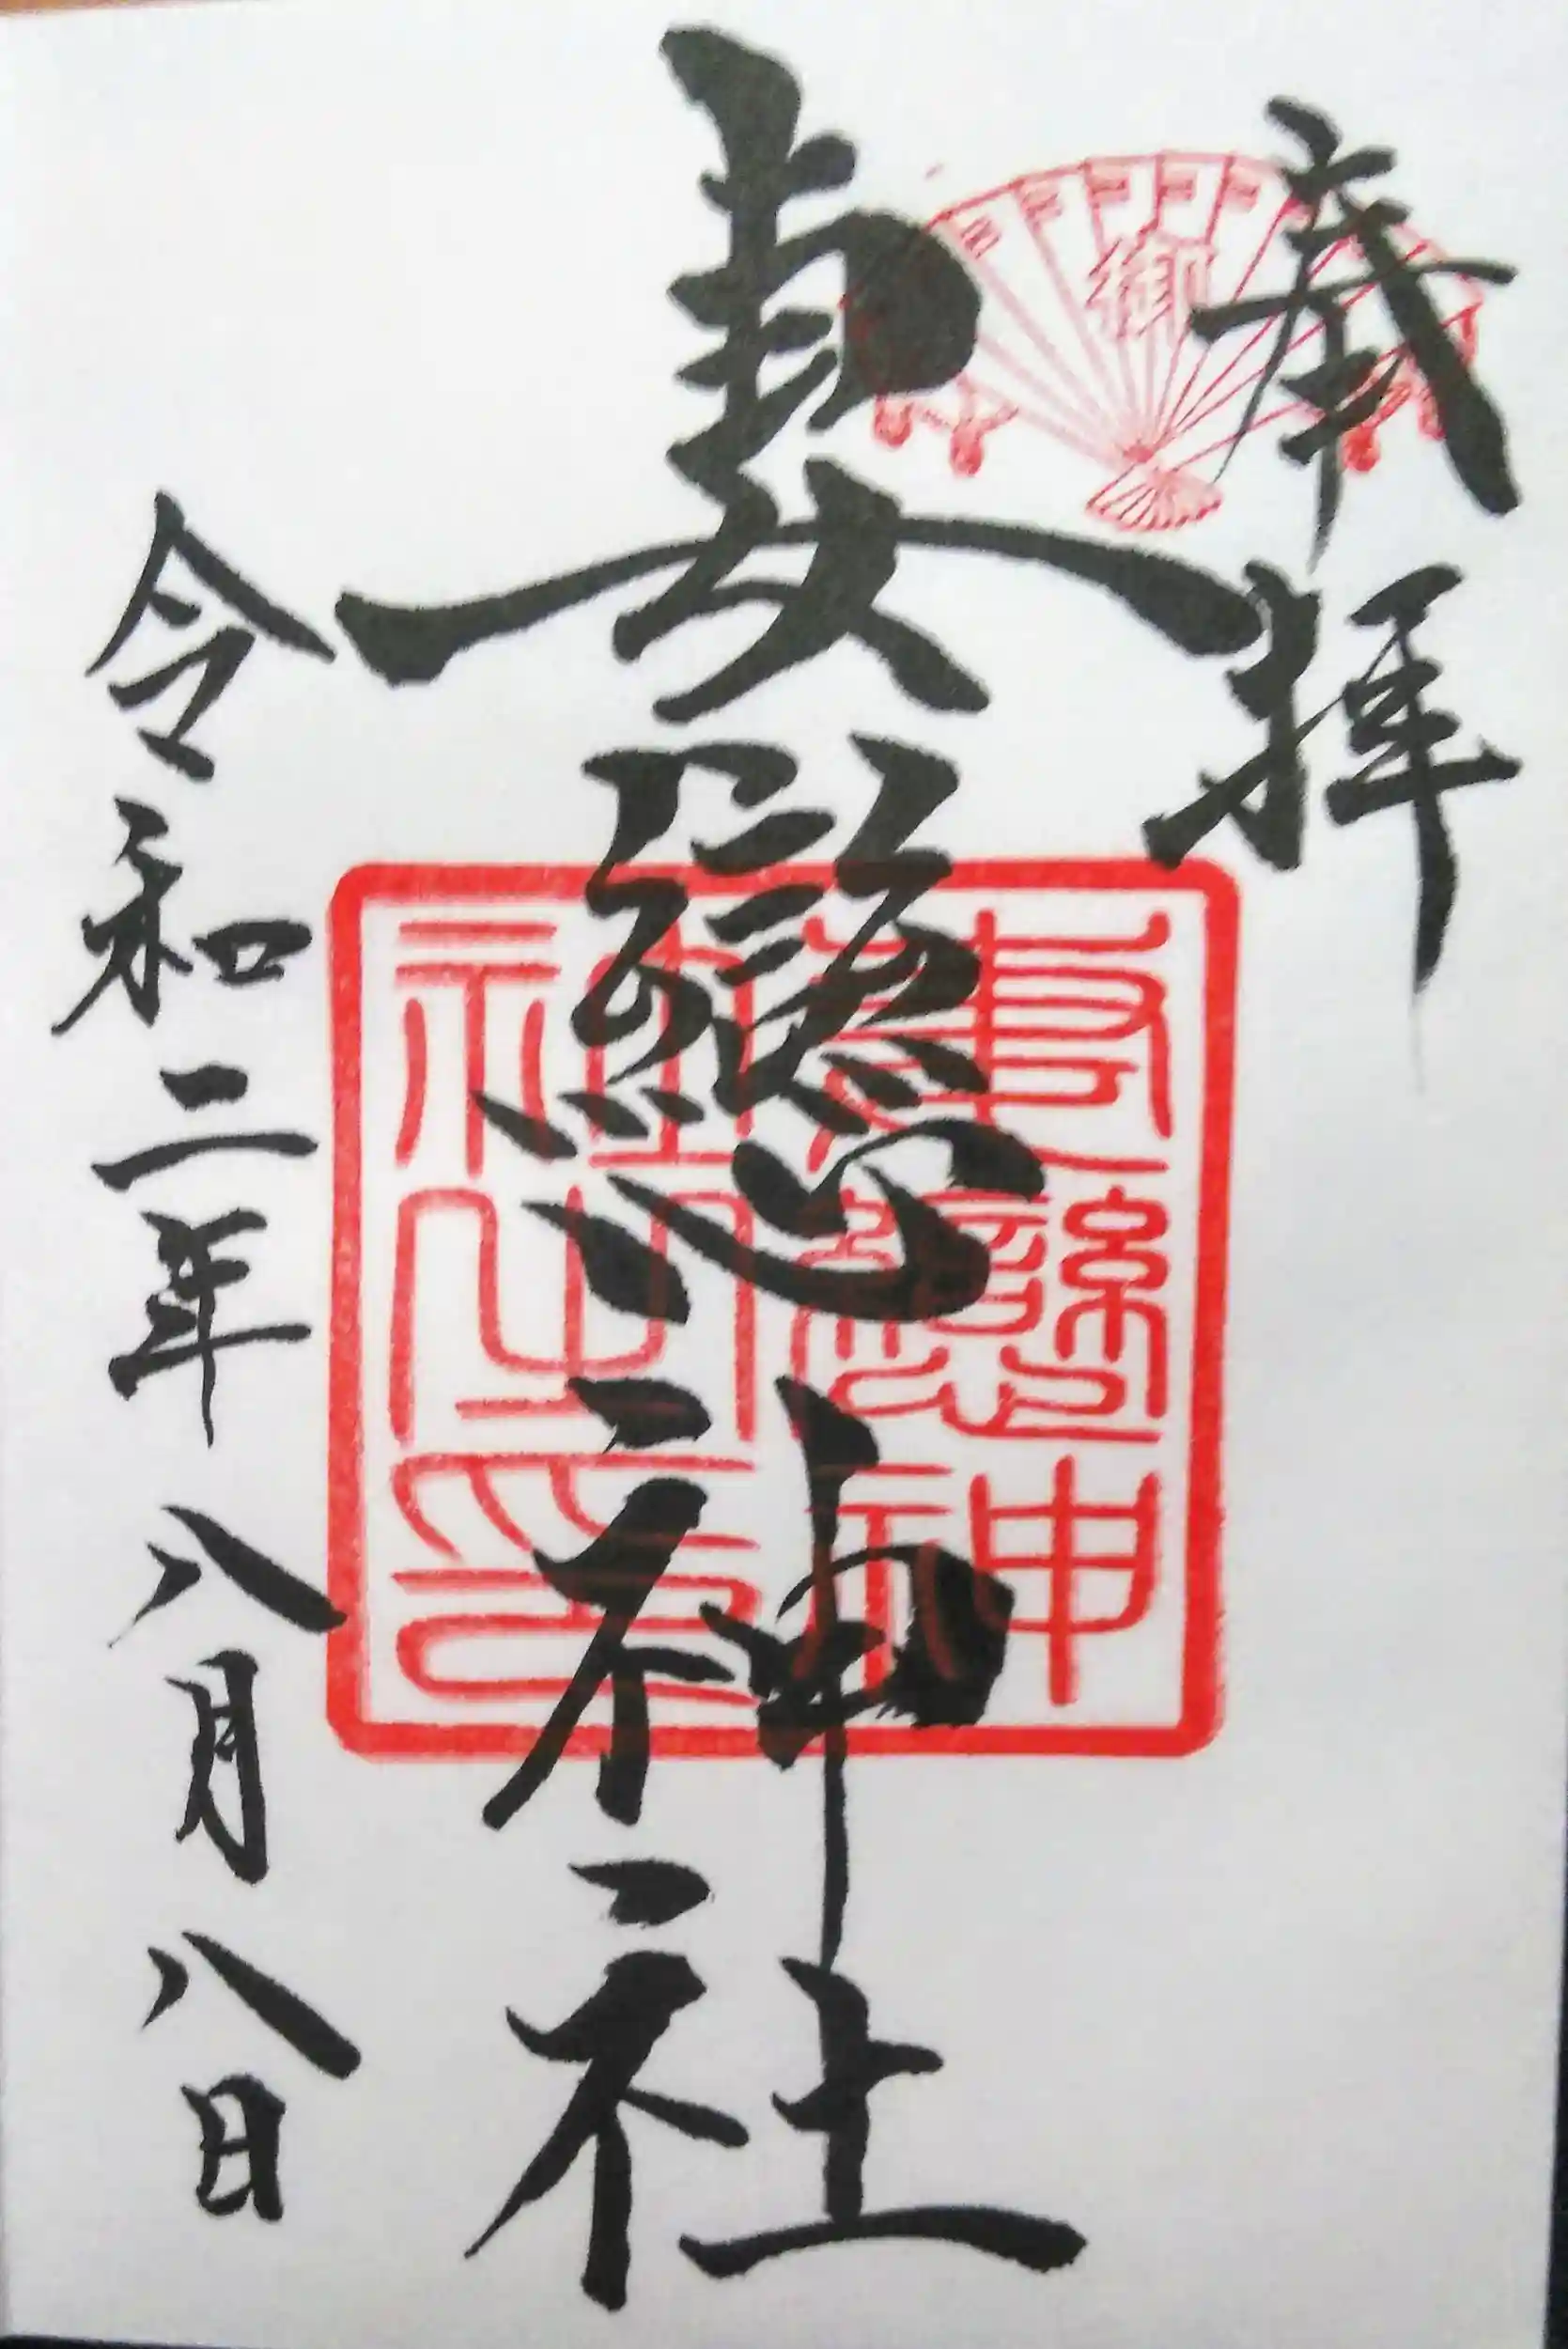 奉拝
妻戀神社
令和二年八月八日
御
妻戀神
社之印